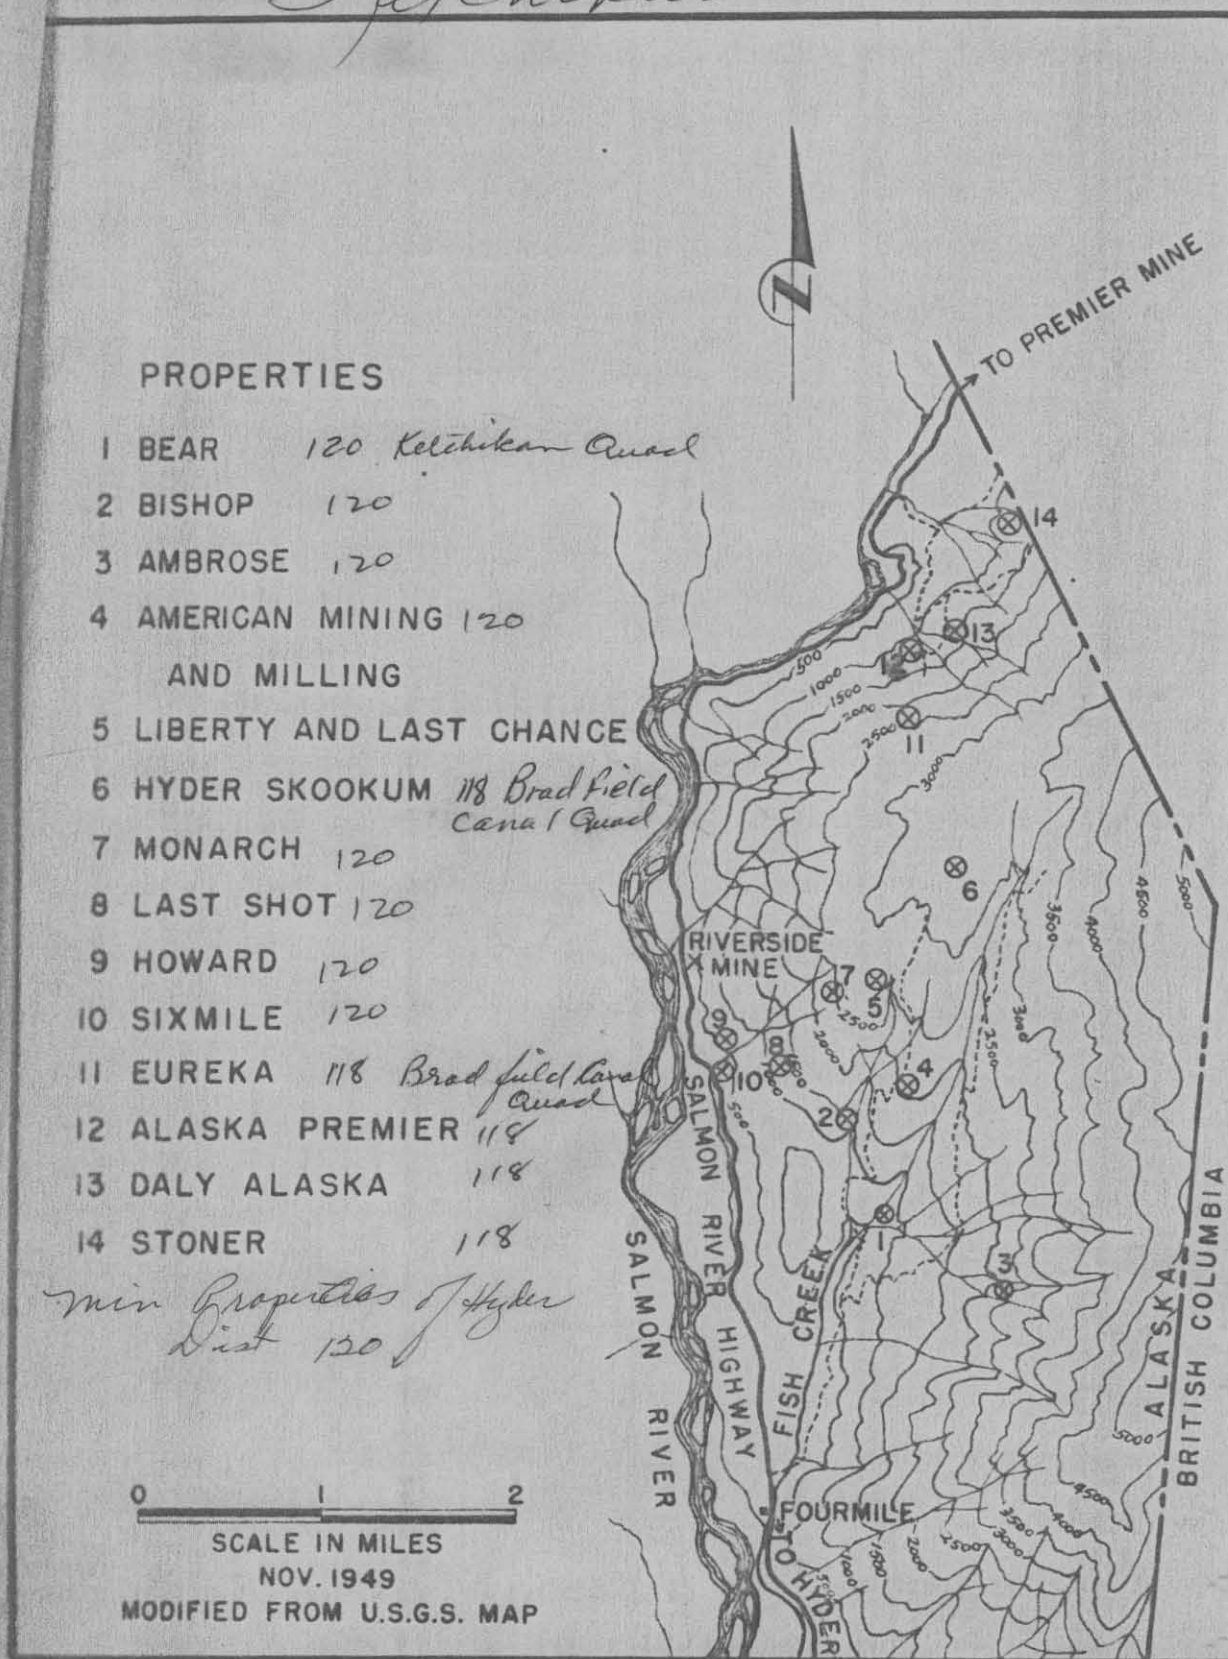 PROPERTIES
1 BEAR 120 Ketchikan Quad
2 BISHOP 120
3 AMBROSE 120
4 AMERICAN MINING 120
AND MILLING
5 LIBERTY AND LAST CHANCE
6 HYDER SKOOKUM 118 Bradfield
Canal Quad
7 MONARCH 120
8 LAST SHOT 120
9 HOWARD 120
10 SIXMILE 120
11 EUREKA 118 Bradfield Canal
Quad
12 ALASKA PREMIER 118
13 DALY ALASKA 118
14 STONER 118
Min Properties of Hyder
Dist 120
0 1 2
SCALE IN MILES
NOV. 1949
MODIFIED FROM U.S.G.S. MAP
N
TO PREMIER MINE
14
13
12
500
1000
1500
2000
2500
11
3000
6
3500
4000
4500
5000
RIVERSIDE
MINE
7
5
2500
2000
3000
2500
9
8
10
4
500
2
1
3
SALMON RIVER HIGHWAY
SALMON RIVER
FISH CREEK
ALASKA
BRITISH COLUMBIA
5000
4500
4000
3500
3000
2500
2000
1500
1000
500
FOURMILE
TO HYDER